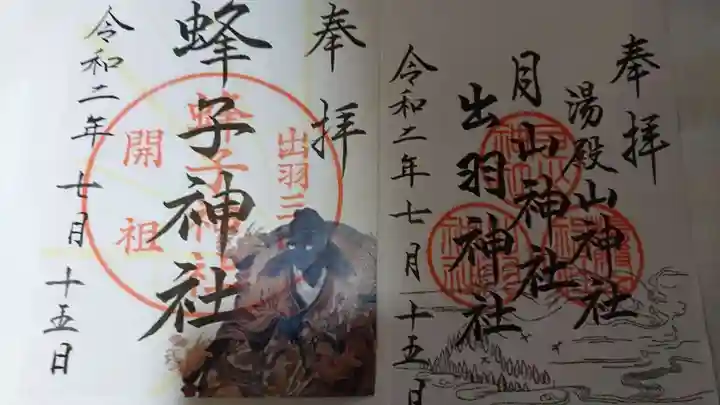 奉拝
蜂子神社
令和二年七月十五日
出羽三
蜂子神社
開祖
奉拝
湯殿山神社
月山神社
出羽神社
令和二年七月十五日